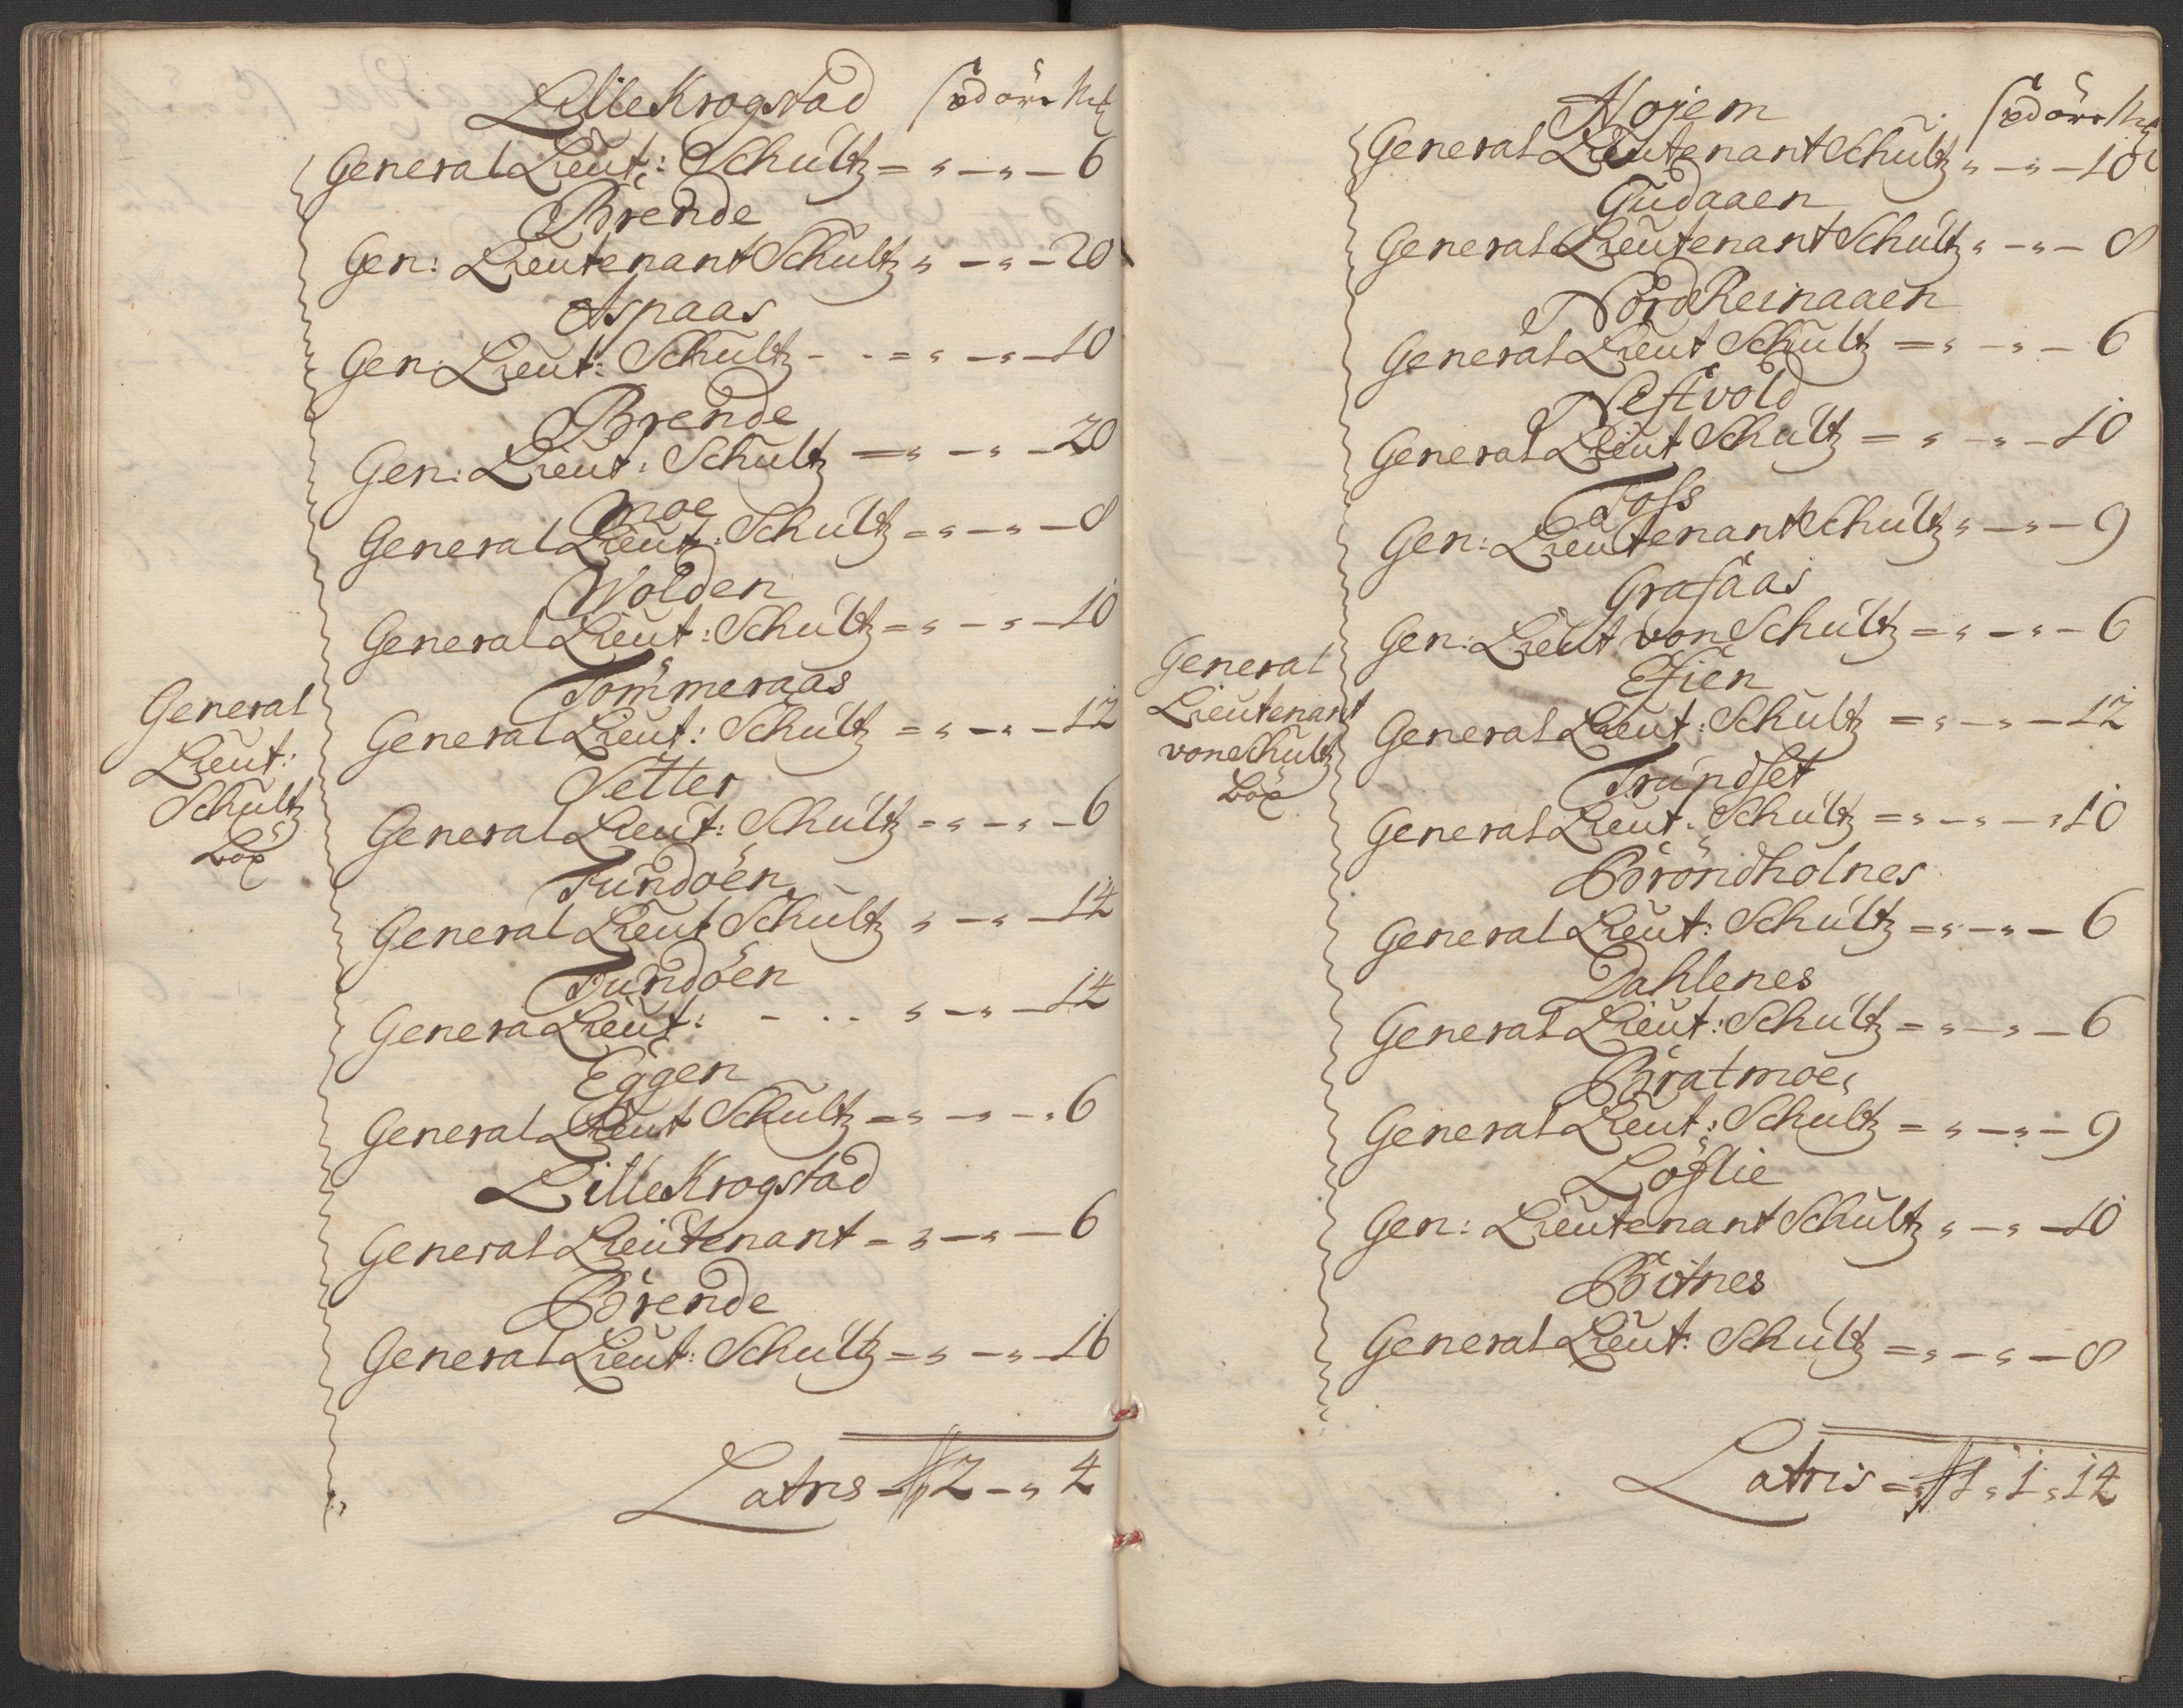 Lille Krogstad
General Lieut: Schultz = „ — „ — 6
Brende
Gen: Lieutenant Schultz „ — „ — 20
Aspaas
Gen: Lieut: Schultz - - = „ — „ — 10
Brende
Gen: Lieut: Schultz = „ — „ — 20
Moe
General Lieut: Schultz = „ — „ — 8
Wolden
General Lieut: Schultz = „ — „ — 10
Tømmeraas
General Lieut: Schultz = „ — „ — 12
Setter
General Lieut: Schultz = „ — „ — 6
Fundöen
General Lieut Schultz „ — „ — 14
Fundöen
Genera Lieut: - . . „ — „ — 14
Eggen
General Lieut Schultz = „ — „ — 6
Lille Krogstad
General Lieutenant = „ — „ — 6
Brende
General Lieut: Schultz = „ — „ — 16
General
Lieut:
Schultz
Latris = 2 — „ 4
Hojem
General Lieutenant Schultz „ — „ — 10
Gudaaen
General Lieutenant Schultz „ — „ — 8
Nord Reinaaen
General Lieut Schultz = „ — „ — 6
Nestvold
General Lieut Schultz = „ — „ — 10
Foss
Gen: Lieutenant Schultz „ — „ — 9
Grasaas
Gen: Lieut von Schultz = „ — „ — 6
Efien
General Lieut: Schultz = „ — „ — 12
Trundset
General Lieut: Schultz = „ — „ — 10
Bröndholnes
General Lieut: Schultz = „ — „ — 6
Dahlenes
General Lieut: Schultz = „ — „ — 6
Bratmoe
General Lieut: Schultz = „ — „ — 9
Löflie
Gen: Lieutenant Schultz „ — „ — 10
Bitnes
General Lieut: Schultz = „ — „ — 8
General
Lieutenant
von Schultz
Latris = 1 „ 1 „ 14